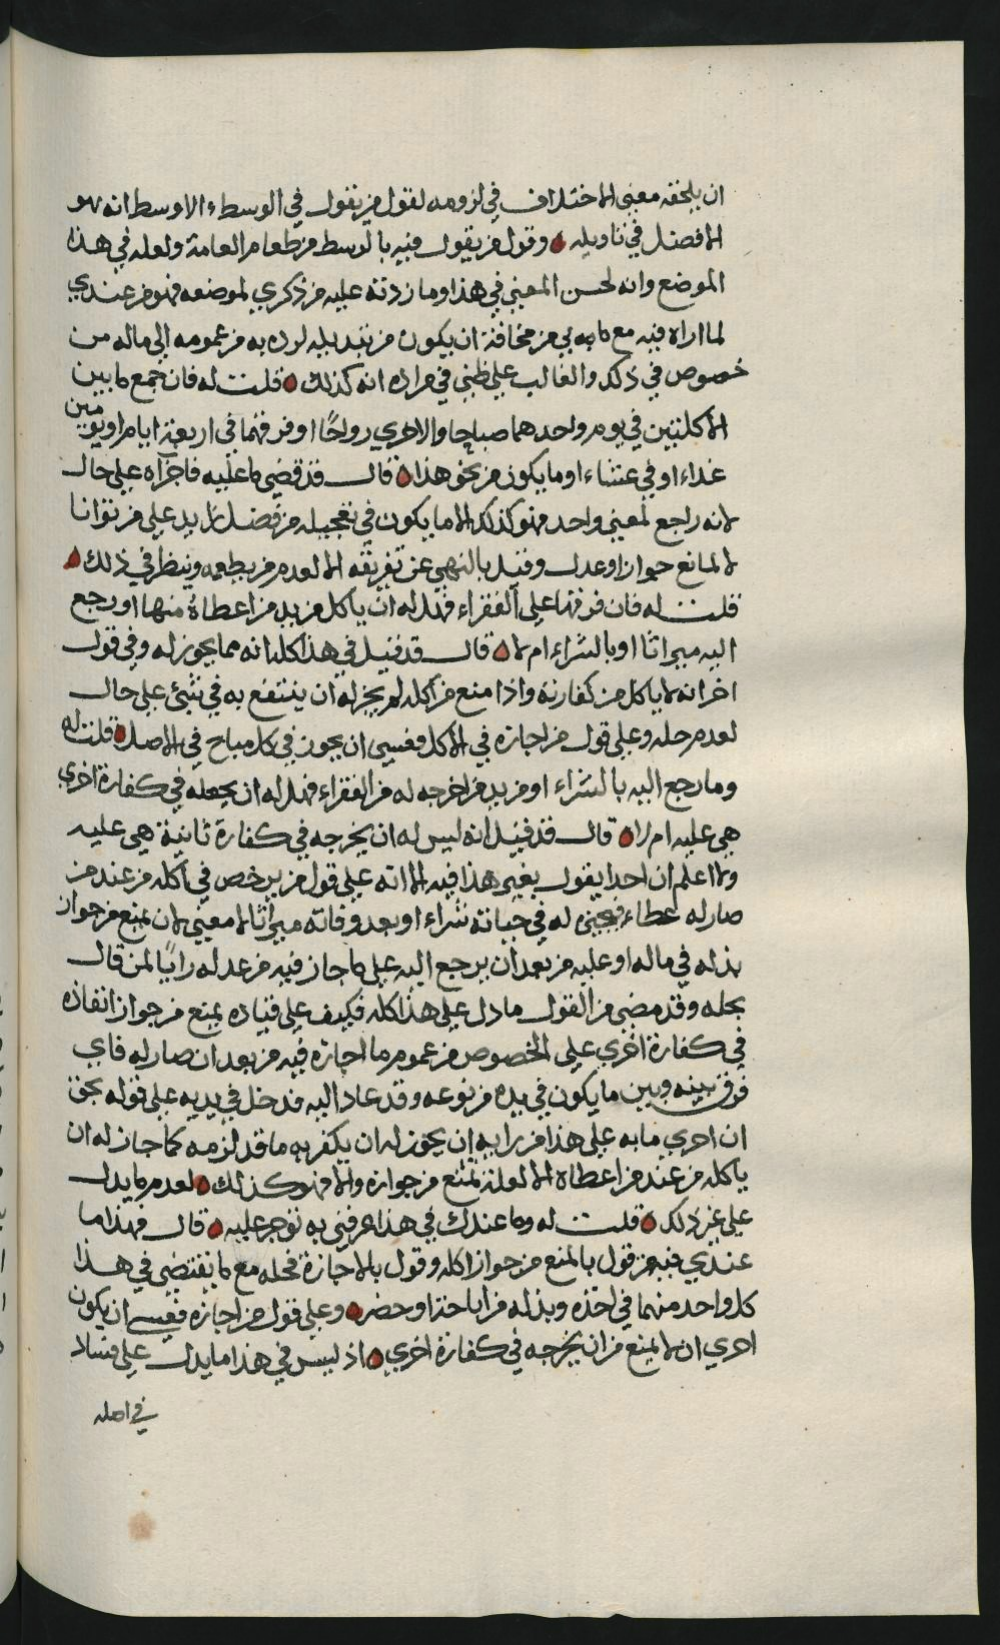 ان يلحقه معنى الاختلاف في لزومه لقول من يقول في الوسط الاوسط انه هو
الافضل في تاويله وقول من يقول فيه بالوسط من طعام العامة ولعله في هذا
الموضع وانه لحسن المعنى في هذا وما زدته عليه من ذكري لموضعه فهو من عندي
لما اراه فيه مع ما به بي من مخافة ان يكون من تبديله لرده به من عمومه الى ماله من
خصوص في ذلك والغالب علي ظني في مراده انه كذلك قلت له فان جمع ما بين
الاكلتين في يوم واحدهما صباحا والاخري رواحًا او فرقهما في اربعة ايام او يومين
غداء او في عشاء او ما يكون من نحو هذا قال قد قضي ما عليه فاجزاه علي حال
لانه راجع لمعني واحد فهو كذلك الا ما يكون في تعجيله من فضل يزيد علي من توانا
لا لمانع جوازا وعدل وقيل بالنهي عن تفريقه الا لعدم من يطعمه وينظر في ذلك
قلت له فان فرقها علي الفقراء فهل له ان ياكل من يد من اعطاه منها او رجع
اليه ميراثا او بالشراء ام لا قال قد قيل في هذا كله انه مما يجوز له وفي قول
اخر انه لا ياكل من كفارته واذا منع من اكله لم يجز له ان ينتفع به في شئ علي حال
لعدم حله وعلي قول من اجازه في الاكل فعسي ان يجوز في كل مباح في الاصل قلت له
وما رجع اليه بالشراء او من يد من اخرجه له من الفقراء فهل له ان يجعله في كفارة اخري
هي عليه ام لا قال قد قيل انه ليس له ان يخرجه في كفارة ثانية هي عليه
ولا اعلم ان احدا يقول بغير هذا فيه الا انه علي قول من يرخص في اكله من عند من
صار له عطاء فيعجبني له في حياته شراء او بعد وفاته ميراثا لا معني لان يمنع من جواز
بذله في ماله او عليه من بعد ان يرجع اليه علي ما جاز فيه من عدله رايًا لمن قال
بحله وقد مضي من القول ما دل علي هذا كله فكيف علي قياده يمنع من جواز انفاذه
في كفارة اخري علي الخصوص من عموم ما اجازه فيه من بعد ان صار له فاي
فرق بينه وبين ما يكون في يده من نوعه وقد عاد اليه فدخل في يديه علي قوله بحق
ان احري ما به علي هذا من رايه ان يجوز له ان يكفر به ما قد لزمه كما جاز له ان
ياكله من عند من اعطاه الا لعلة تمنع من جوازه والا فهو كذلك لعدم ما يدل
علي غير ذلك قلت له وما عندك في هذا عرفني به توجر عليه قال فهذا ما
عندي فيه من قول بالمنع من جواز اكله وقول بالاجازة فخله مع ما يقتضي في هذا
كل واحد منهما في اخذه وبذله من اباحة او حضر وعلي قول من اجازه فعسي ان يكون
احري ان لا يمنع من ان يخرجه في كفارة اخري اذ ليس في هذا ما يدل علي فساد
في اصله